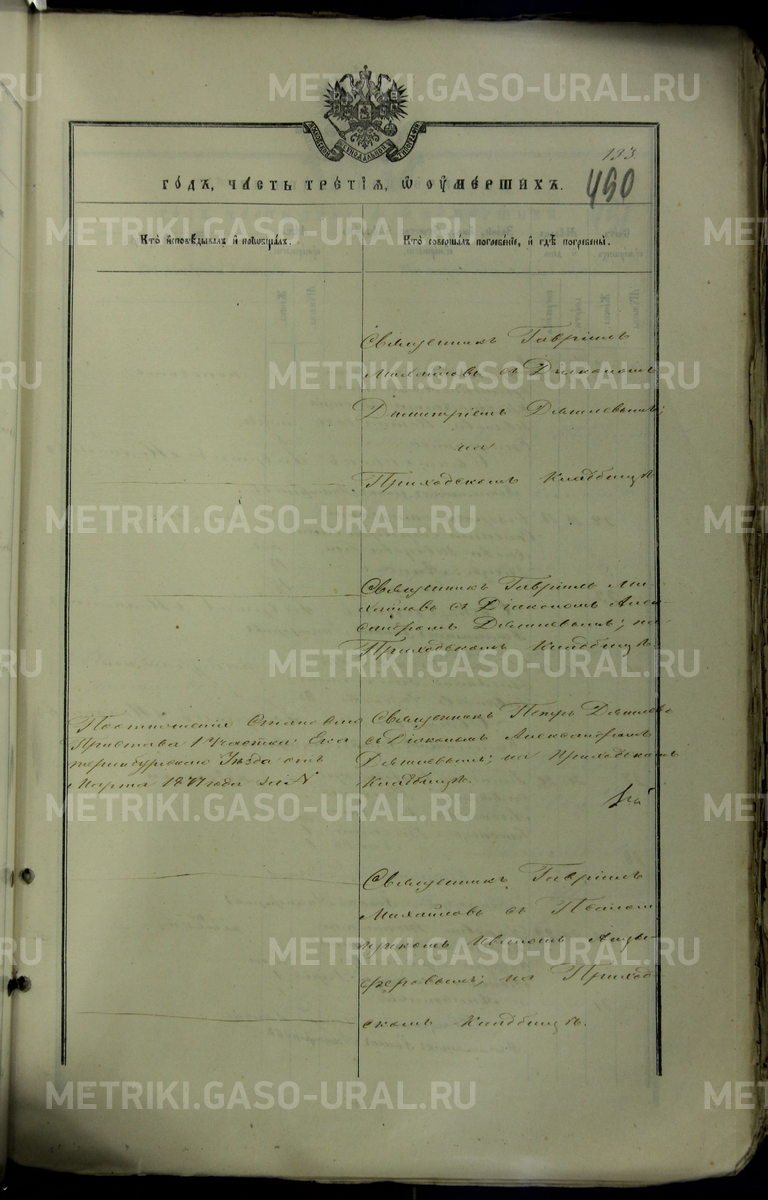 МОСКОВСКОЙ СУНОДАЛЬНОЙ ТИПОГРАФІИ
193.
490
ГОДЪ, ЧАСТЬ ТРЕТІЯ, Ѿ ОУМЕРШИХЪ.
Кто исповѣдывалъ и пріобщалъ.
Кто совершалъ погребеніе, и гдѣ погребены.
Священникъ Гавріилъ
Михайловъ съ Діакономъ
Димитріемъ Дягилевымъ;
на
Приходскомъ Кладбищѣ
Священникъ Гавріилъ Ми-
хайловъ съ Діакономъ Алек
сандромъ Дягилевымъ; на
Приходскомъ Кладбищѣ.
Пристава 1 Участка Ека
теринбургскаго Уѣзда отъ
Марта 1877 года за N
Священникъ Петръ Дягилевъ
съ Діакономъ Александромъ
Дягилевымъ; на Приходскомъ
Кладбищѣ.
Священникъ Гавріилъ
Михайловъ съ Псалом
щикомъ Иваномъ
на Приход
скомъ Кладбищѣ.
METRIKI.GASO-URAL.RU